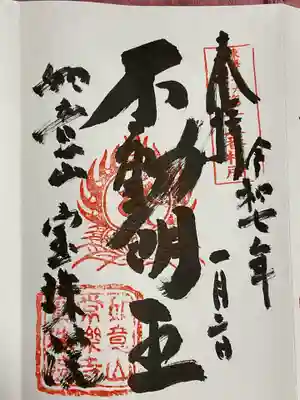 奉拝
令和七年
一月二日
不動明王
如意山
宝珠院
如意山
常樂寺